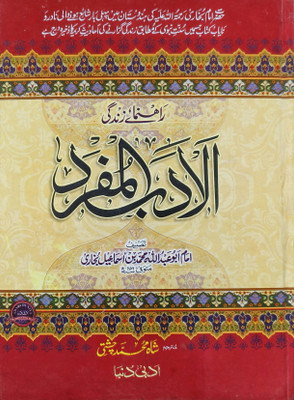 حضرت امام بخاری رحمۃ اللہ علیہ کی ہندوستان میں پہلی بار شائع ہونے والی نادر و
نایاب کتاب جسمیں سنت نبوی کے مطابق زندگی گزارنے کی احادیث کریمہ کا ذخیرہ درج ہے
راہنمائے زندگی
الادب المفرد
تصنیف
امام ابو عبد اللہ محمد بن اسماعیل بخاری
متوفی ۲۵۶ھ
مترجم شاہ محمد چشتی
ادبی دنیا